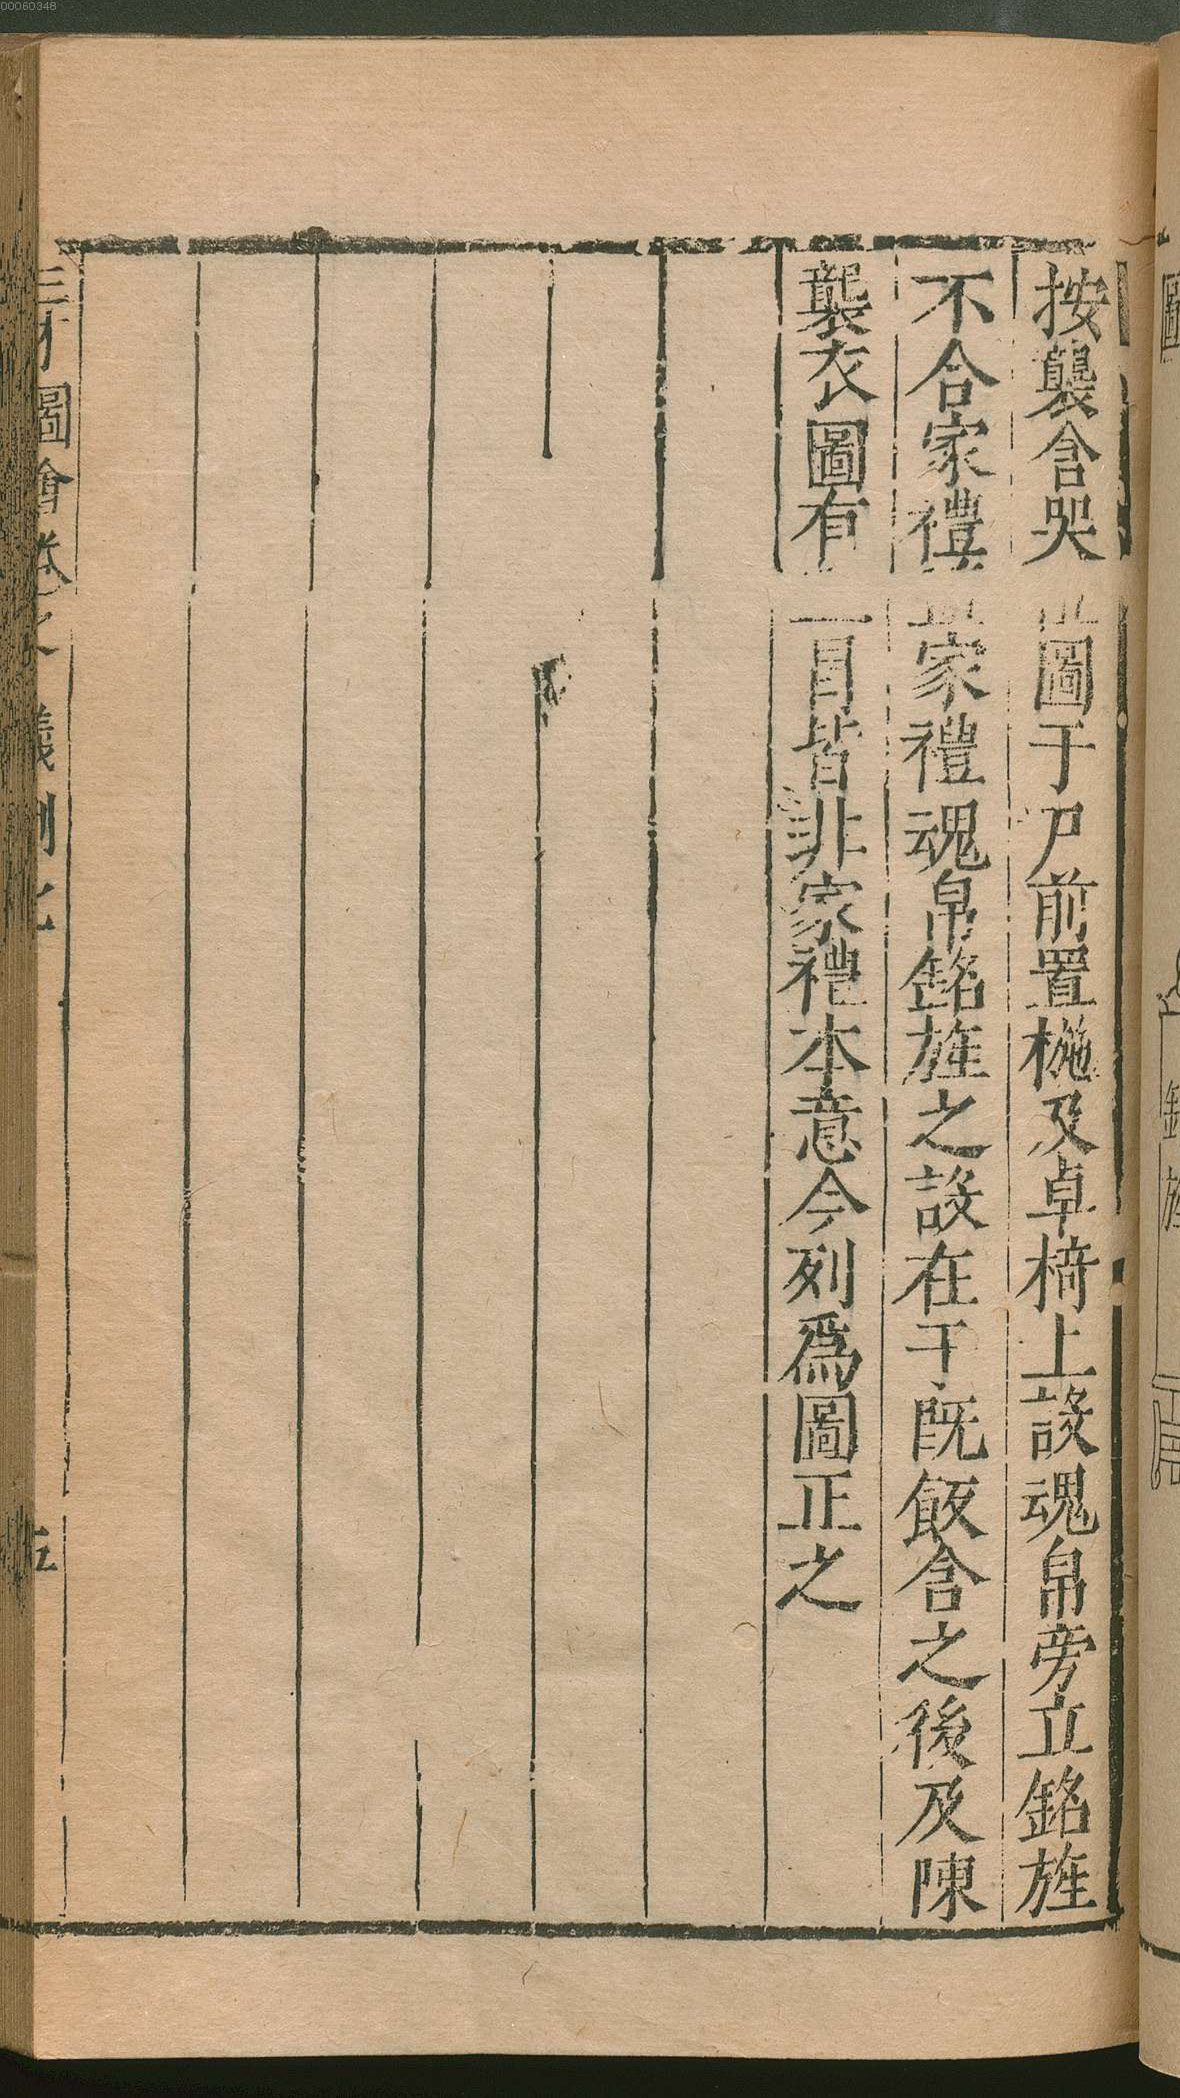 按襲含哭圖于尸前置椸及卓椅上設魂帛旁立銘旌
不合家禮家禮魂帛銘旌之設在于既飯含之後及陳
襲衣圖有冒皆非家禮本意今列爲圖正之
三才圖會卷之 儀制七
五
圖
銘旌
00060348